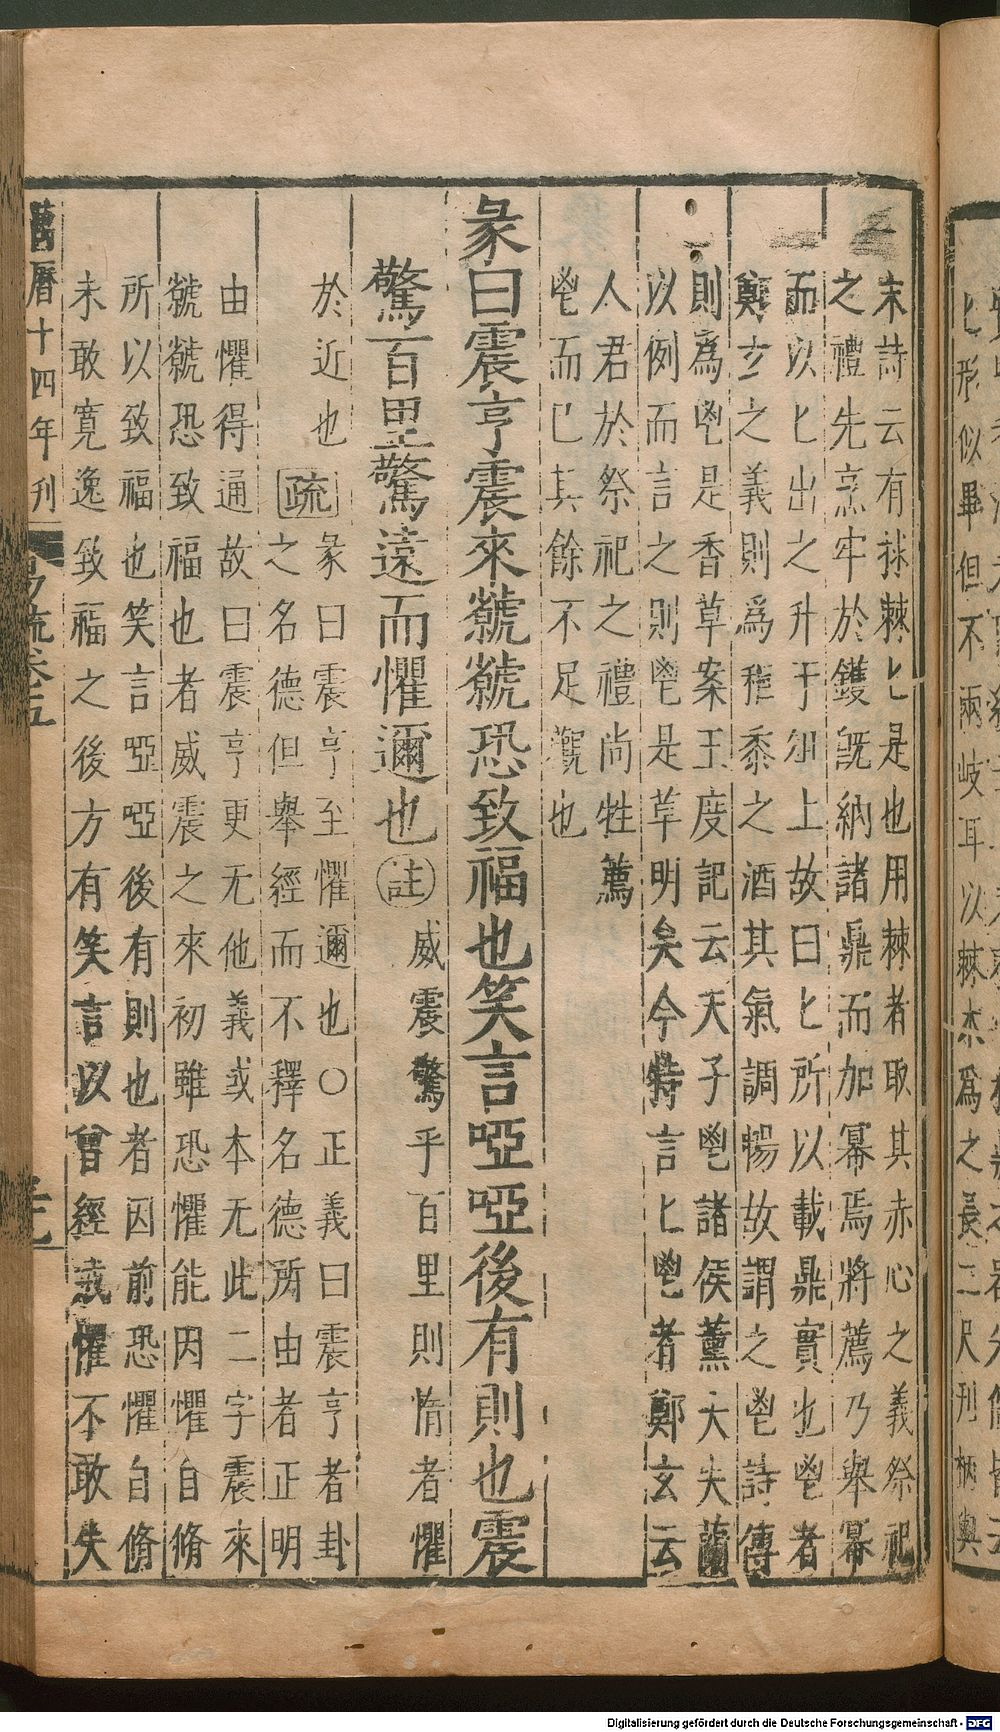 末詩云有捄棘匕是也用棘者取其赤心之義祭祀
之禮先烹牢於鑊既納諸鼎而加冪焉將薦乃舉冪
而以匕出之升于俎上故曰匕所以載鼎實也鬯者
鄭玄之義則爲秬黍之酒其氣調暢故謂之鬯詩傳
則爲鬯是香草案王度記云天子鬯諸侯薰大夫蘭
以例而言之則鬯是草明矣今特言匕鬯者鄭玄云
人君於祭祀之禮尚牲薦
鬯而已其餘不足觀也
彖曰震亨震來虩虩恐致福也笑言啞啞後有則也震
驚百里驚遠而懼邇也
註
威震驚乎百里則惰者懼
於近也
疏
彖曰震亨至懼邇也○正義曰震亨者卦
之名德但舉經而不釋名德所由者正明
由懼得通故曰震亨更无他義或本无此二字震來
虩虩恐致福也者威震之來初雖恐懼能因懼自脩
所以致福也笑言啞啞後有則也者因前恐懼自脩
未敢寬逸致福之後方有笑言以曾經戒懼不敢失
萬曆十四年刊
易疏卷五
匕形似畢但不兩岐耳以棘木爲之長二尺刊柄與
Digitalisierung gefördert durch die Deutsche Forschungsgemeinschaft - DFG